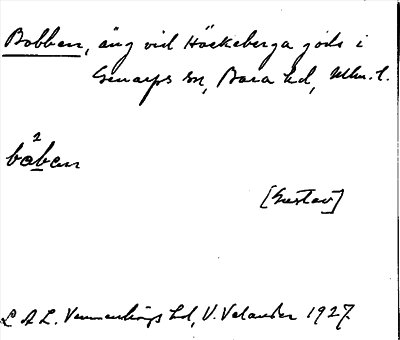 Bobben, äng vid Häckeberga gods i
Genarps sn, Bara hd, Mlm. l.
2
båben
[Gustav]
L A L. Vemmenhögs hd, V. Velander 1927.